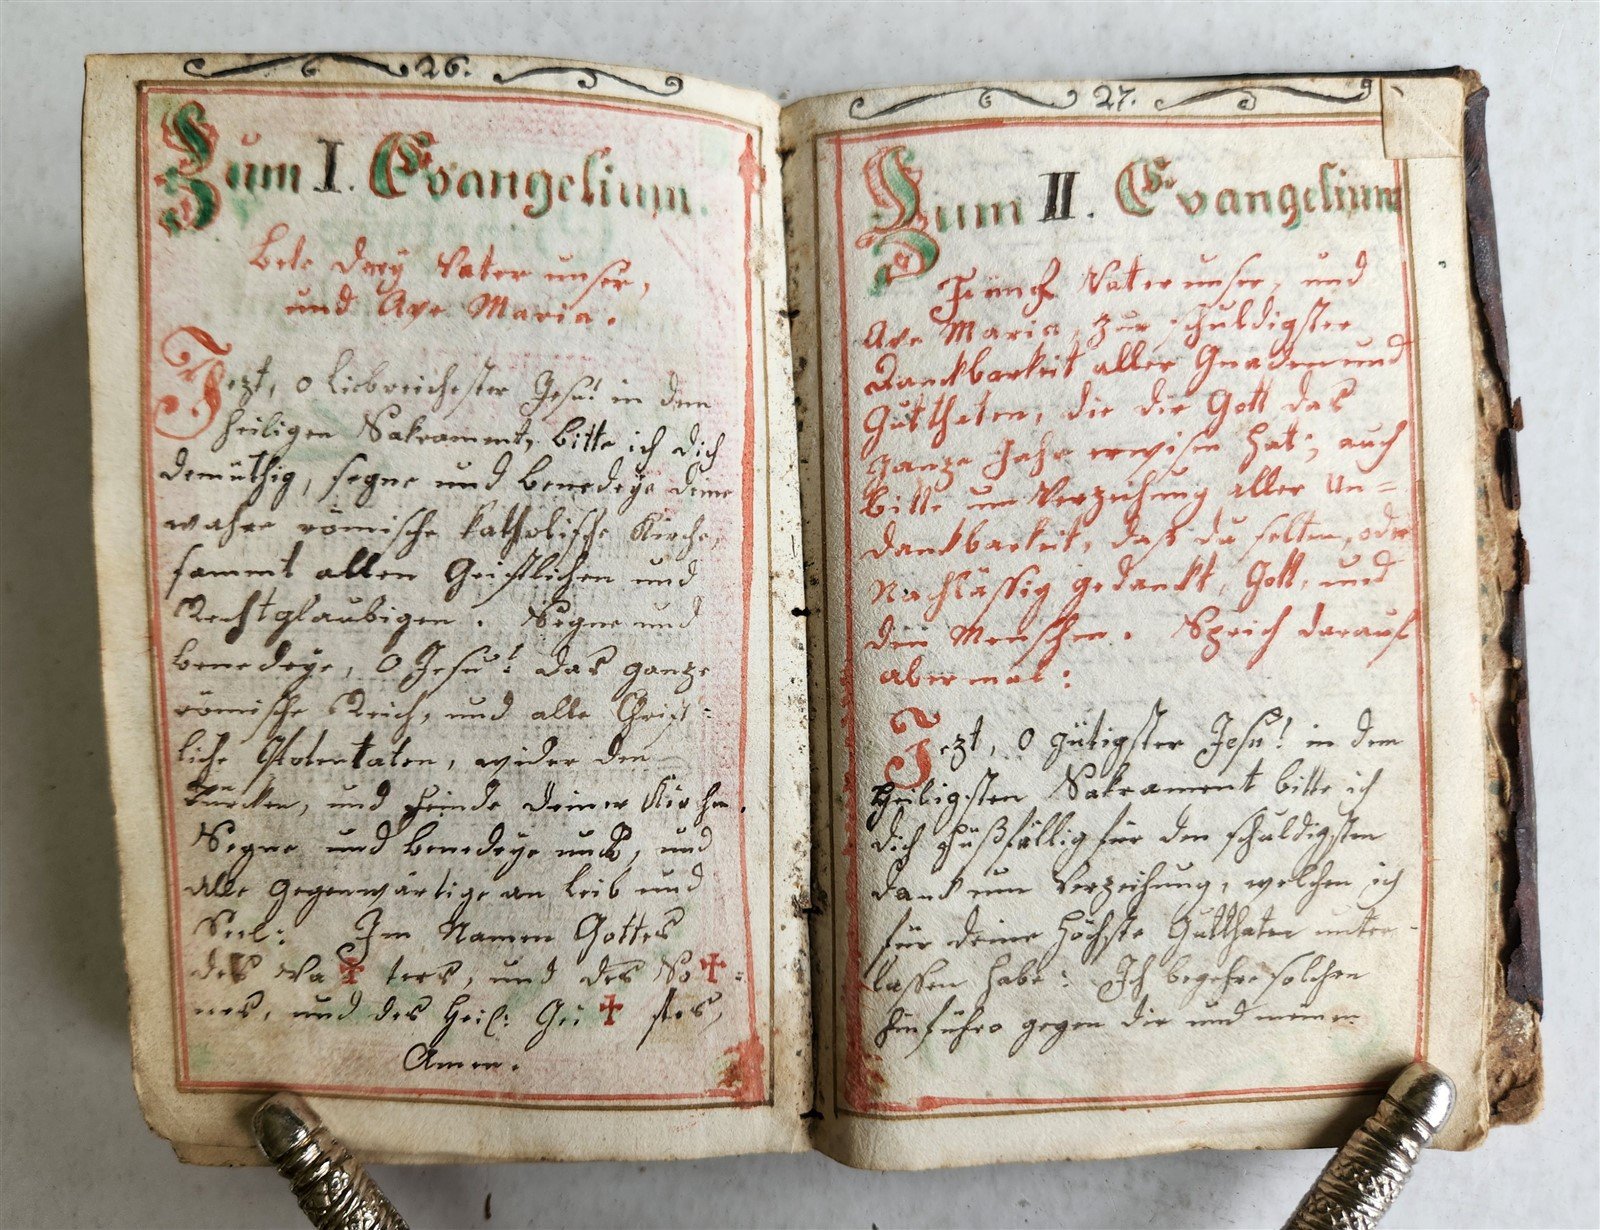 26.
Zum I. Evangelium.
Bete drey Vater unser,
und Ave Maria.
Jezt, o liebreichester Jesu! in dem
heiligen Sakrament, bitte ich dich
demüthig, segne und benedeye deine
wahre römische katholische Kirche,
sammt allen Geistlichen und
Rechtglaubigen. Segne und
benedeye, O Jesu! das ganze
römische Reich, und alle Christ:
liche Potentaten, wider den
Türcken, und Feinde deiner Kirchen.
Segne und benedeye auch, und
alle gegenwärtige an Leib und
Seel: Im Namen Gottes
des Va ✝ ters, und des So ✝ :
nes, und des Heil: Gei ✝ stes,
Amen.
27.
Zum II. Evangelium
Fünf Vater unser, und
Ave Maria, zur schuldigster
Danckbarkeit aller Gnaden und
Gutthaten, die dir Gott das
ganze Jahr erwisen hat; auch
bitte um Verzeihung aller Un=
danckbarkeit, daß du selten, oder
Nachlässig gedanckt, Gott, und
den Menschen. Sprich darauf
abermal:
Jezt, O gütigster Jesu! in dem
Heiligsten Sakrament bitte ich
dich fußfällig für den schuldigsten
Danck um Verzeihung, welchen ich
für deine höchste Gutthaten unter-
lassen habe: Ich begehre solchen
hinführo gegen dir und meinen